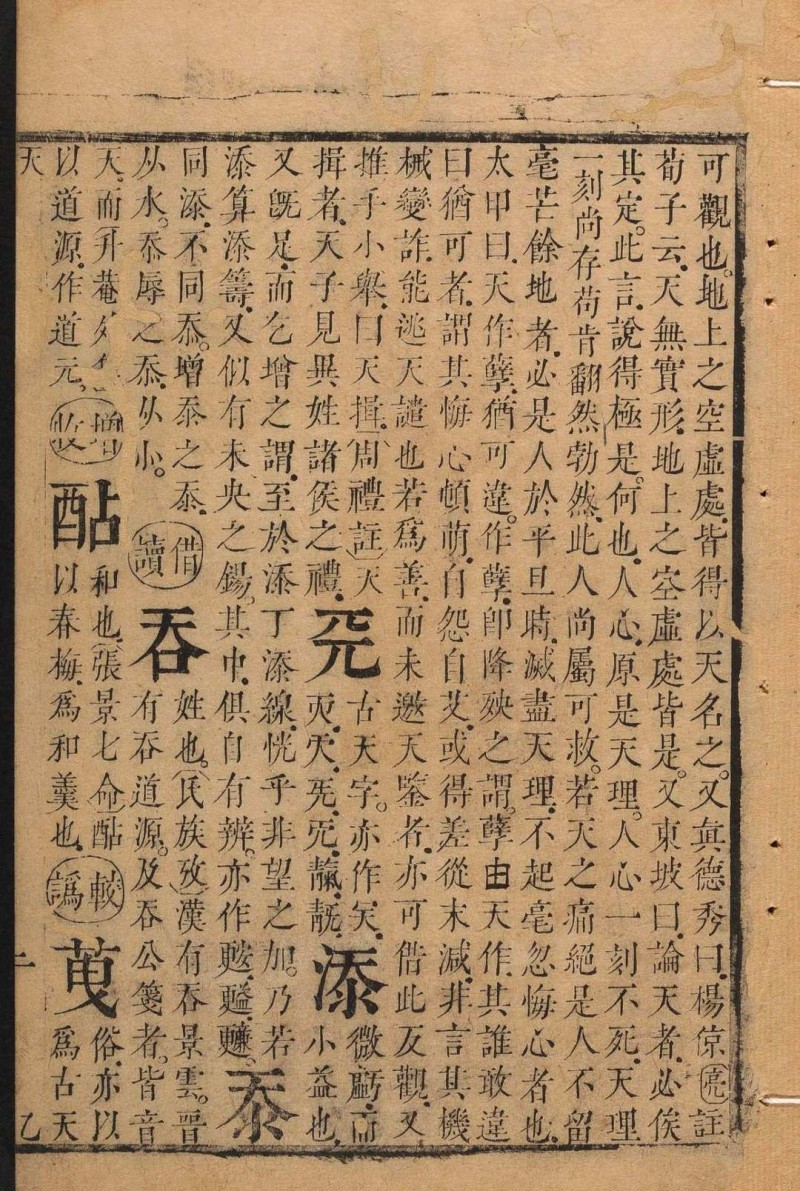 可觀也。地上之空虛處。皆得以天名之。又真德秀曰。楊倞亮註
荀子云。天無實形。地上之空虛處皆是。又東坡曰。論天者。必俟
其定。此言。說得極是。何也。人心。原是天理。人心一刻不死。天理
一刻尚存。苟肯翻然勃然。此人尚屬可救。若天之痛絕是人。不留
毫芒餘地者。必是人於平旦時。滅盡天理。不起毫忽悔心者也。
太甲曰。天作孽。猶可違。作孽。卽降殃之謂。孽由天作。其誰敢違
曰猶可者。謂其悔心頓萌。自怨自艾。或得差從末減。非言其機
械變詐。能逃天譴也。若爲善。而未邀天鑒者。亦可借此反觀。又
推手小舉。曰天揖。周禮註。天
揖者。天子見異姓諸侯之禮。
兲 古天字。亦作
𠀡 添 微虧。而
小益也
又旣足。而乞增之謂。至於添丁添線。恍乎非望之加。乃若
添算添籌。又似有未央之錫。其中。俱自有辨。亦作 忝
同添。不同忝。增忝之忝。
从水。忝辱之忝。从小。
借讀 吞 姓也。氏族攷。漢有吞景雲。晉
有吞道源。及吞公箋者。皆音
天。而升菴外
以道源。作道元。
增收 酟 和也。張景七命。酟
以春梅。爲和羹也。
較譌 俗。亦以
爲古天
天 二 乙